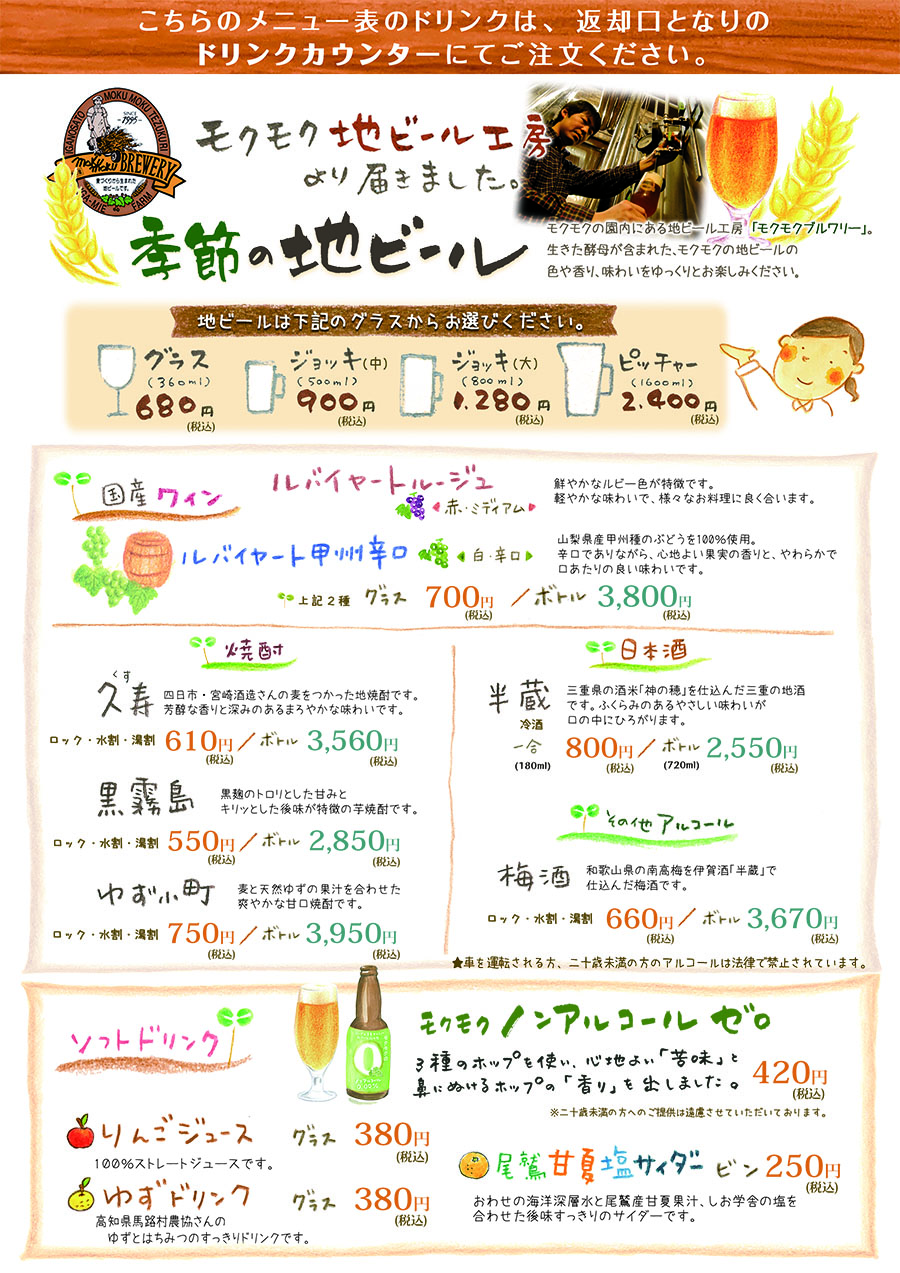 こちらのメニュー表のドリンクは、返却口となりの
ドリンクカウンターにてご注文ください。
IGANOSATO MOKU MOKU TEZUKURI
SINCE
-1995-
MokuMoku BREWERY
麦づくりから生まれた
地ビールです。
IGA-MIE FARM
モクモク地ビール工房
より届きました。
季節の地ビール
モクモクの園内にある地ビール工房「モクモクブルワリー」。
生きた酵母が含まれた、モクモクの地ビールの
色や香り、味わいをゆっくりとお楽しみください。
地ビールは下記のグラスからお選びください。
グラス
(360ml)
680円
(税込)
ジョッキ(中)
(500ml)
900円
(税込)
ジョッキ(大)
(800ml)
1.280円
(税込)
ピッチャー
(1600ml)
2.400円
(税込)
国産ワイン
ルバイヤートルージュ
赤・ミディアム
鮮やかなルビー色が特徴です。
軽やかな味わいで、様々なお料理に良く合います。
ルバイヤート甲州辛口
白・辛口
山梨県産甲州種のぶどうを100%使用。
辛口でありながら、心地よい果実の香りと、やわらかで
口あたりの良い味わいです。
上記2種 グラス 700円／ボトル 3,800円
(税込) (税込)
焼酎
くす
久寿
四日市・宮崎酒造さんの麦をつかった地焼酎です。
芳醇な香りと深みのあるまろやかな味わいです。
ロック・水割・湯割 610円／ボトル 3,560円
(税込) (税込)
黒霧島
黒麹のトロリとした甘みと
キリッとした後味が特徴の芋焼酎です。
ロック・水割・湯割 550円／ボトル 2,850円
(税込) (税込)
ゆず小町
麦と天然ゆずの果汁を合わせた
爽やかな甘口焼酎です。
ロック・水割・湯割 750円／ボトル 3,950円
(税込) (税込)
日本酒
半蔵
冷酒
三重県の酒米「神の穂」を仕込んだ三重の地酒
です。ふくらみのあるやさしい味わいが
口の中にひろがります。
一合 800円／ボトル 2,550円
(180ml) (税込) (720ml) (税込)
その他アルコール
梅酒
和歌山県の南高梅を伊賀酒「半蔵」で
仕込んだ梅酒です。
ロック・水割・湯割 660円／ボトル 3,670円
(税込) (税込)
★車を運転される方、二十歳未満の方のアルコールは法律で禁止されています。
ソフトドリンク
0
モクモクノンアルコールゼロ
3種のホップを使い、心地よい「苦味」と
鼻にぬけるホップの「香り」を出しました。
420円
(税込)
※二十歳未満の方へのご提供は遠慮させていただいております。
りんごジュース グラス 380円
(税込)
100%ストレートジュースです。
ゆずドリンク グラス 380円
(税込)
高知県馬路村農協さんの
ゆずとはちみつのすっきりドリンクです。
尾鷲甘夏塩サイダー ビン 250円
(税込)
おわせの海洋深層水と尾鷲産甘夏果汁、しお学舎の塩を
合わせた後味すっきりのサイダーです。